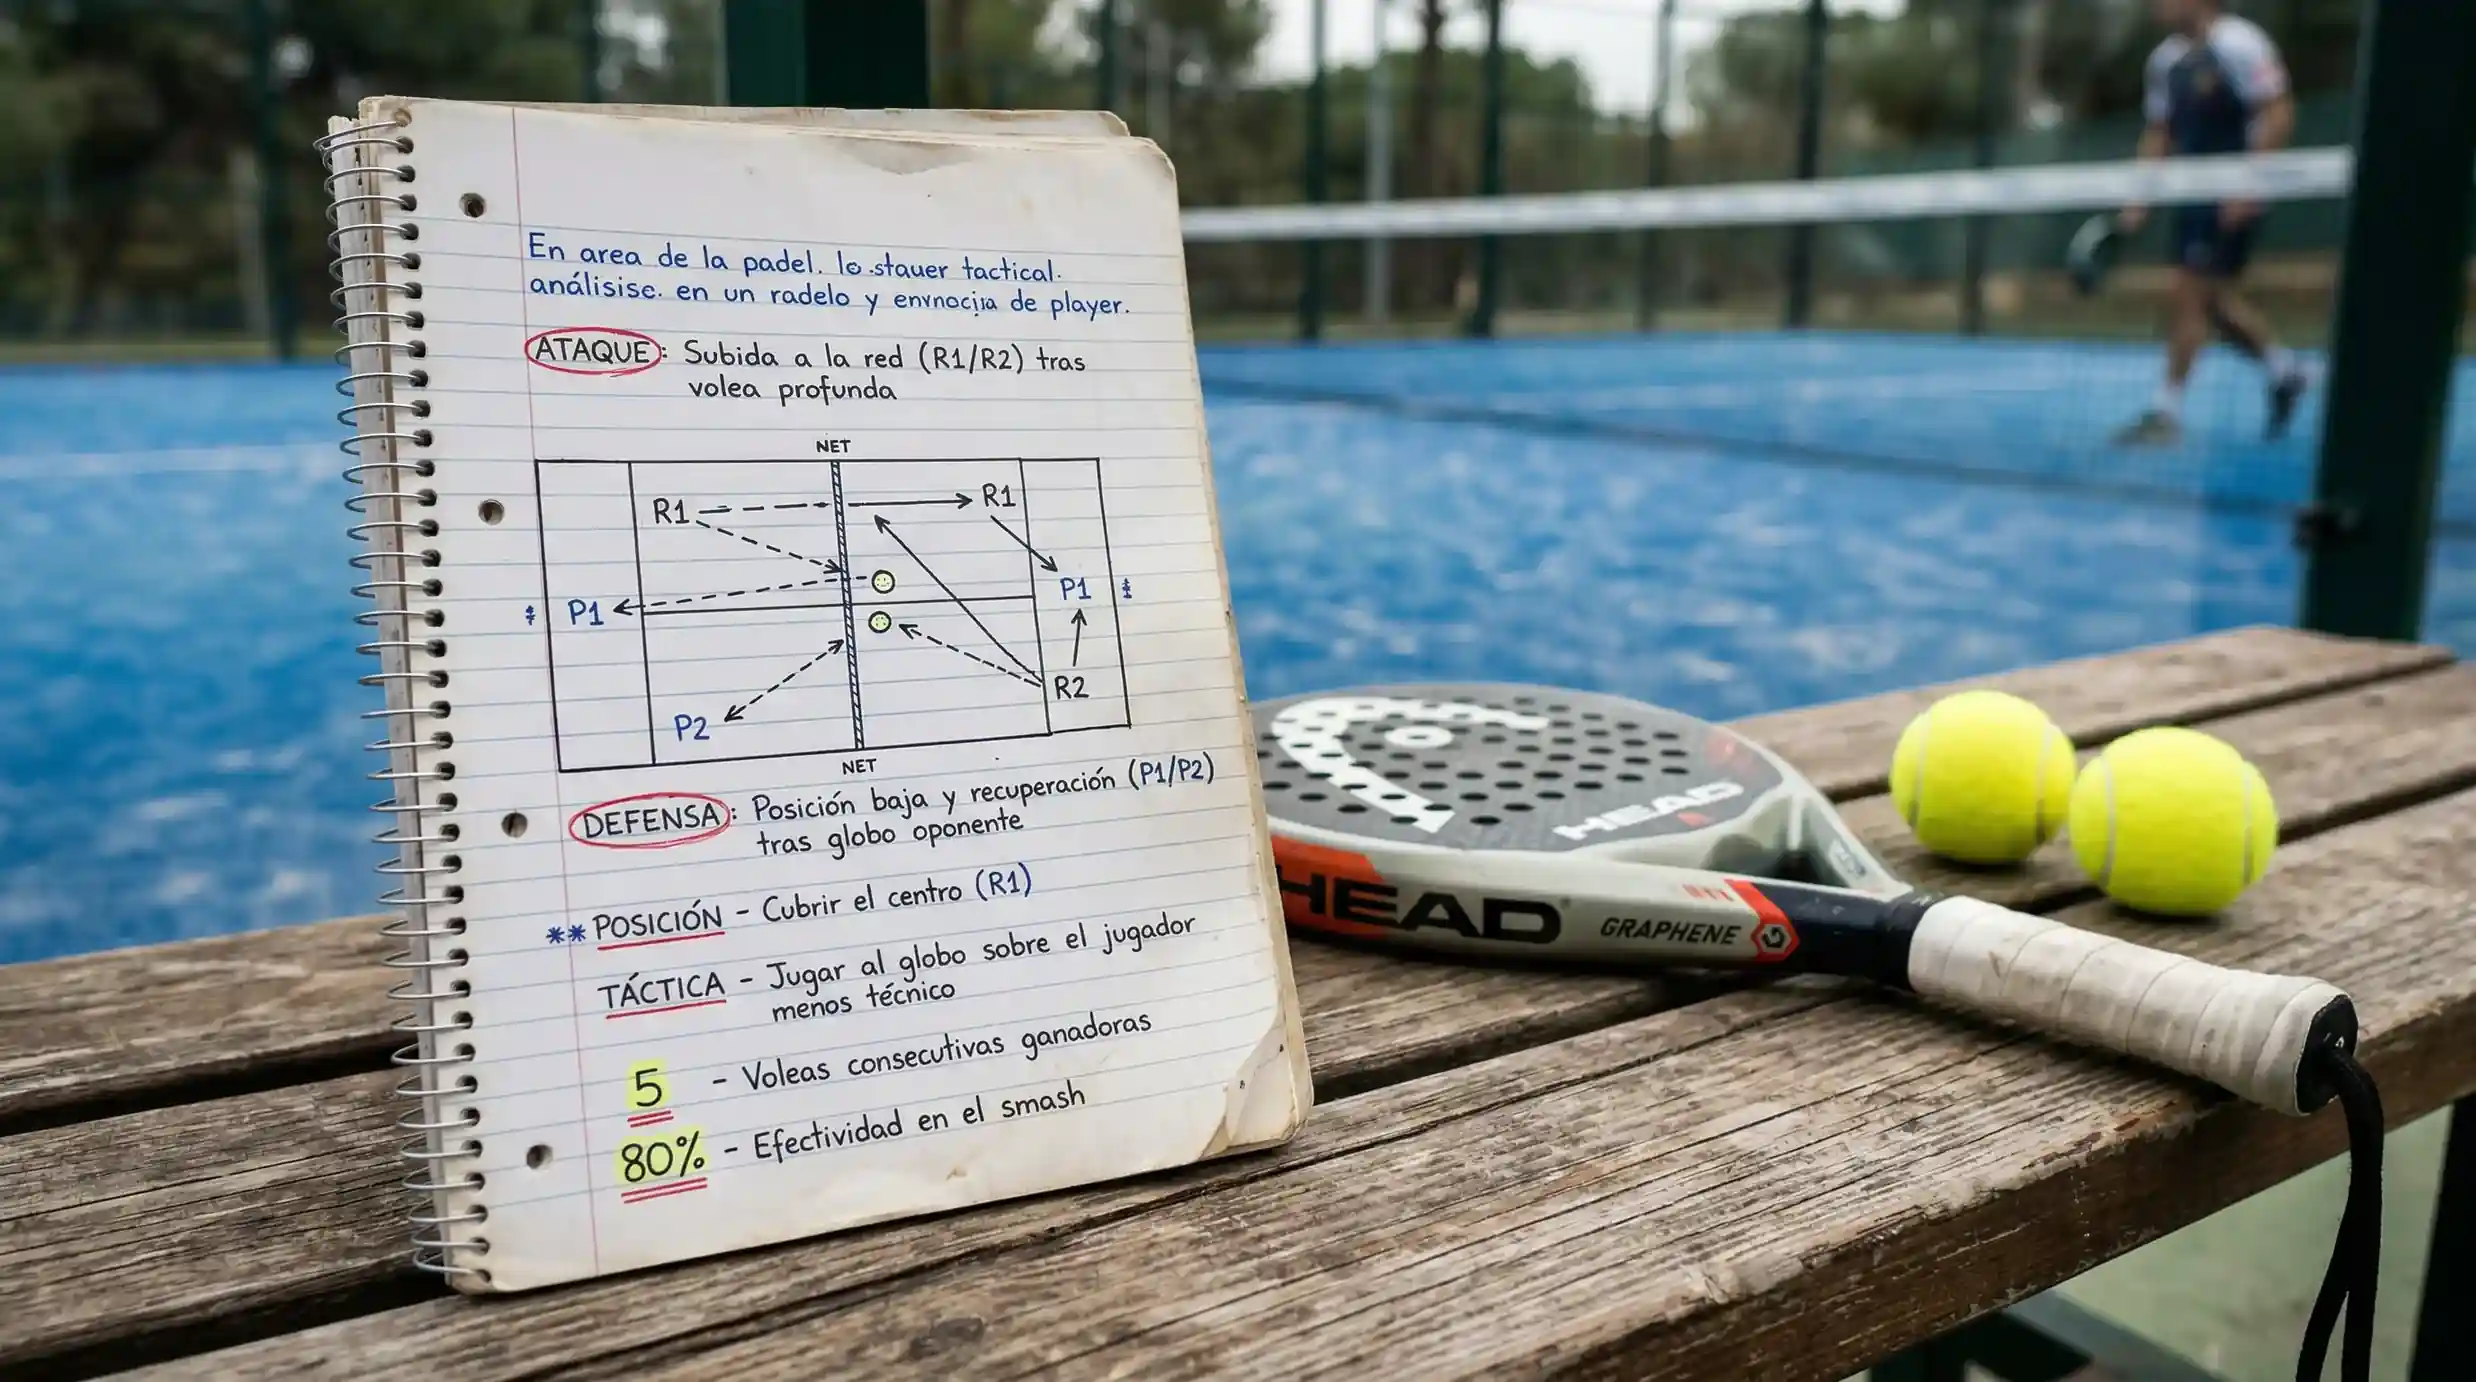 En area de la padel. lo stauer tactical.
análisisc. en un radelo y envnocjia de player.
ATAQUE: Subida a la red (R1/R2) tras
volea profunda
NET
R1 R1
P1 P1
R2
P2
NET
DEFENSA: Posición baja y recuperación (P1/P2)
tras globo oponente
** POSICIÓN - Cubrir el centro (R1)
TÁCTICA - Jugar al globo sobre el jugador
menos técnico
5 - Voleas consecutivas ganadoras
80% - Efectividad en el smash
HEAD
HEAD GRAPHENE